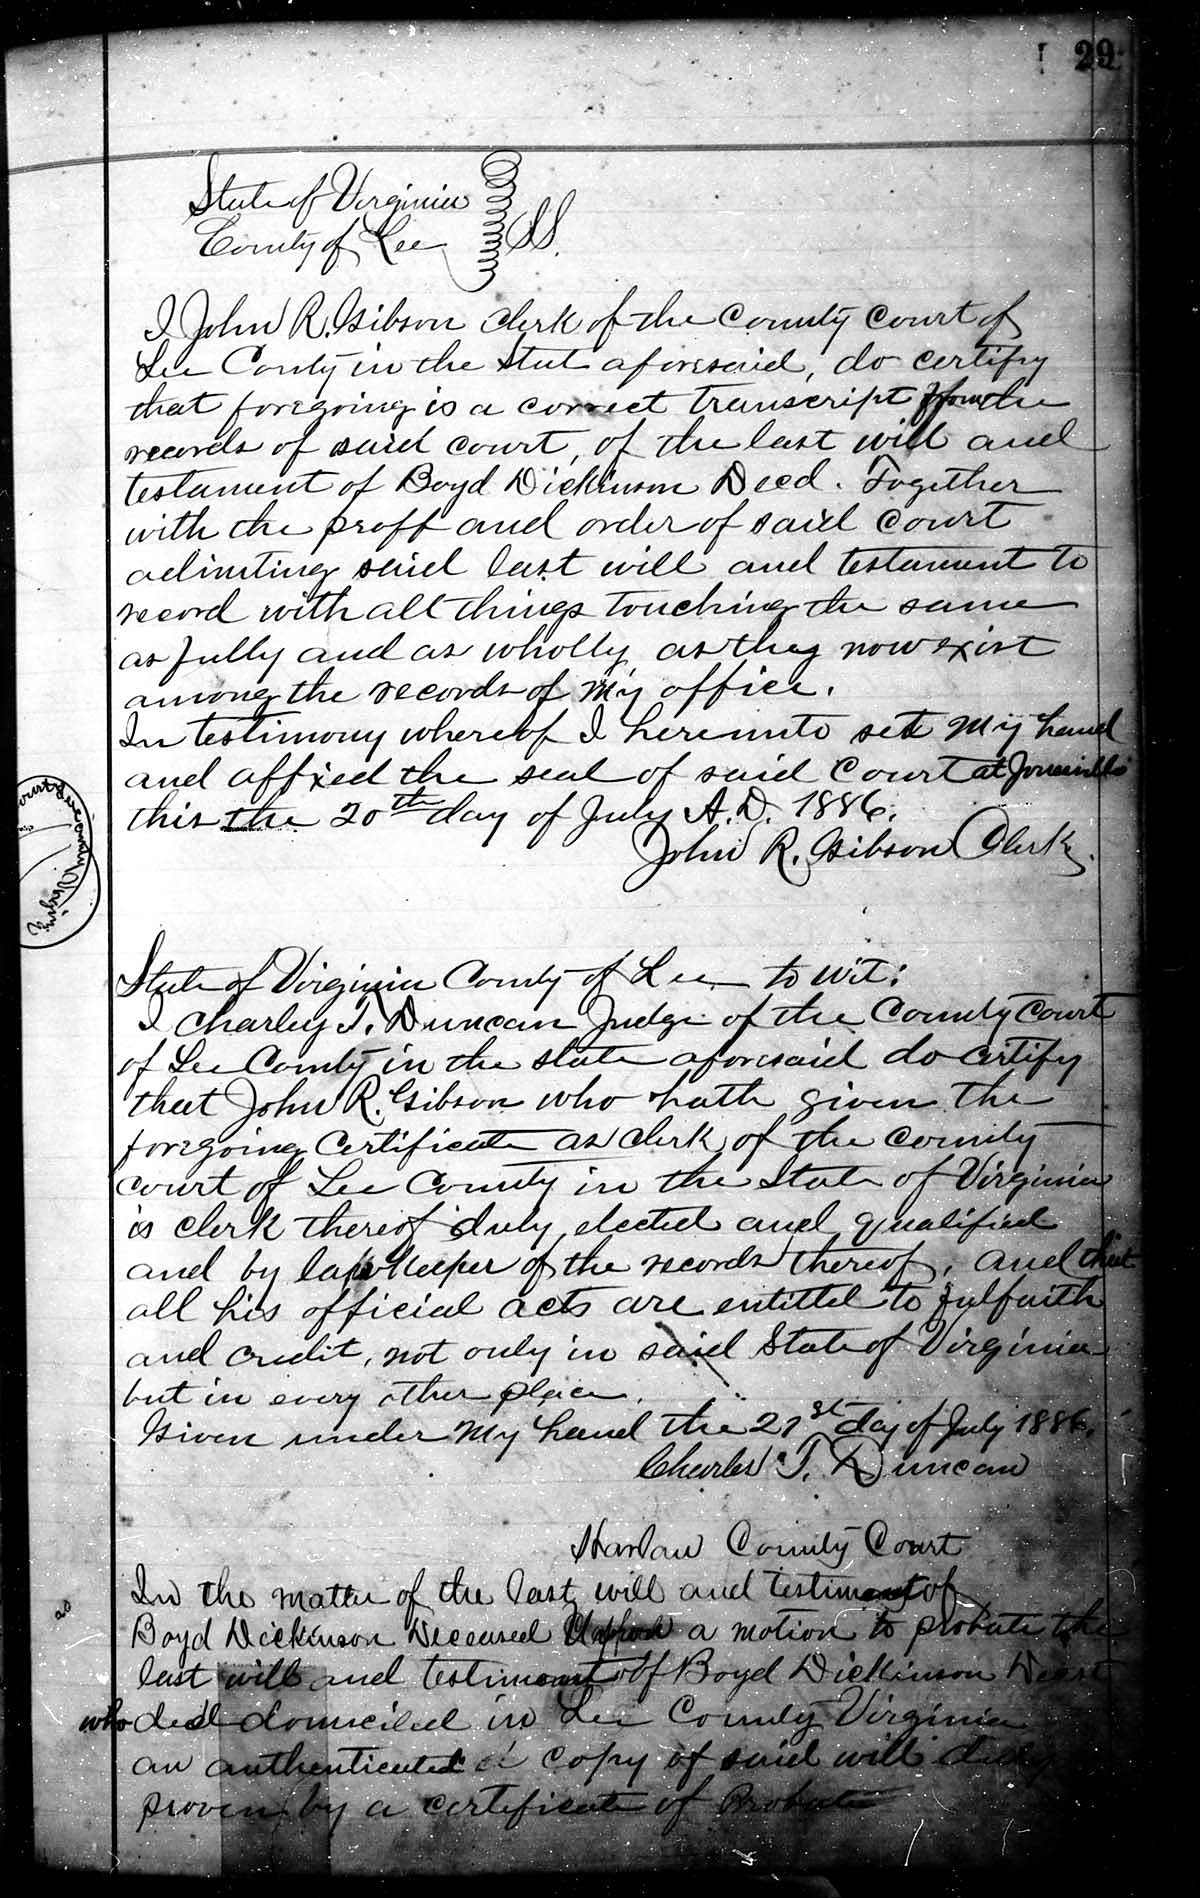 29
State of Virginia
County of Lee SS.
I John R. Gibson Clerk of the County Court of
Lee Conty in the Stat aforesaid, do certify
that foregoing is a correct transcript from the
records of said court, of the last will and
testament of Boyd Dickinson Decd. Together
with the proff and order of said court
admitting said last will and testament to
record with all things touching the same
as fully and as wholly as they now exist
among the records of my office.
In testimony whereof I hereunto set my hand
and affixed the seal of said Court at Jonesville
this the 20th day of July A.D. 1886.
John R. Gibson Clerk
State of Virginia County of Lee to wit:
I Charley T. Duncan Judge of the County Court
of Lee County in the state aforesaid do certify
that John R. Gibson who hath given the
foregoing Certificate as clerk of the county
court of Lee County in the State of Virginia
is clerk thereof duly elected and qualified
and by law keeper of the records thereof, and that
all his official acts are entittel to fulfaith
and credit, not only in said State of Virginia
but in every other place.
Given under my hand the 21st day of July 1886.
Charles T. Duncan
Harlan County Court
In the matter of the last will and testiment of
Boyd Dickinson Deceased a motion to probate the
last will and testiment off Boyd Dickinson
who died domiciled in Lee County Virginia
an authenticated copy of said will duly
proven by a certificate of Probate